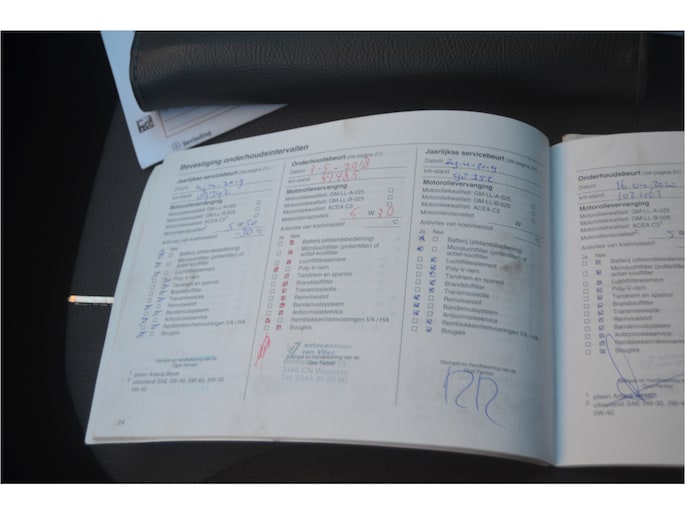 Bevinding
Bevestiging onderhoudsintervallen
Jaarlijkse servicebeurt (zie pagina 21)
Datum
km-stand
Motorolievervanging
Motoroliekwaliteit: GM-LL-A-025
Motoroliekwaliteit: GM-LL-B-025
Motoroliekwaliteit: ACEA C3
Motorolieviscositeit
Antivries van koelvloeistof
Ja Nee
Batterij (afstandsbediening)
Microluchtfilter (pollenfilter) of
actief-koolfilter
Luchtfilterelement
Poly-V-riem
Tandriem en spanrol
Brandstoffilter
Transmissieolie
Remvloeistof
Bandenvulsysteem
Anticorrosieservice
Remblokken/remvoeringen VA / HA
Bougies
Stempel en handtekening van de
Opel Partner
1 alleen Antara Diesel
2 uitsluitend SAE 0W-30, 0W-40, 5W-30,
5W-40
24
Onderhoudsbeurt (zie pagina 21)
Datum 3-5-2018
km-stand
Motorolievervanging
Motoroliekwaliteit: GM-LL-A-025
Motoroliekwaliteit: GM-LL-B-025
Motoroliekwaliteit: ACEA C3
Motorolieviscositeit 5 W 30
°C
Ja Nee
Batterij (afstandsbediening)
Microluchtfilter (pollenfilter) of
actief-koolfilter
Luchtfilterelement
Poly-V-riem
Tandriem en spanrol
Brandstoffilter
Transmissieolie
Remvloeistof
Bandenvulsysteem
Anticorrosieservice
Remblokken/remvoeringen VA / HA
Bougies
autocentrum
van Vliet
Stempel en handtekening van de
Opel Partner
Jaarlijkse servicebeurt (zie pagina 21)
Datum
km-stand
Motorolievervanging
Motoroliekwaliteit: GM-LL-A-025
Motoroliekwaliteit: GM-LL-B-025
Motoroliekwaliteit: ACEA C3
Motorolieviscositeit W
Antivries van koelvloeistof °C
Ja Nee
Batterij (afstandsbediening)
Microluchtfilter (pollenfilter) of
actief-koolfilter
Luchtfilterelement
Poly-V-riem
Tandriem en spanrol
Brandstoffilter
Transmissieolie
Remvloeistof
Bandenvulsysteem
Anticorrosieservice
Remblokken/remvoeringen VA / HA
Bougies
Stempel en handtekening van de
Opel Partner
Onderhoudsbeurt (zie pagina 21)
Datum
km-stand
Motorolievervanging
Motoroliekwaliteit: GM-LL-A-025
Motoroliekwaliteit: GM-LL-B-025
Motoroliekwaliteit: ACEA C3
Motorolieviscositeit
Antivries van koelvloeistof
Ja Nee
Batterij (afstandsbediening)
Microluchtfilter (pollenfilter) of
actief-koolfilter
Luchtfilterelement
Poly-V-riem
Tandriem en spanrol
Brandstoffilter
Transmissieolie
Remvloeistof
Bandenvulsysteem
Anticorrosieservice
Remblokken/remvoeringen
Bougies
Stempel en handtekening
Opel Partner
1 alleen Antara
2 uitsluitend SAE 0W-30, 0W-40,
5W-40